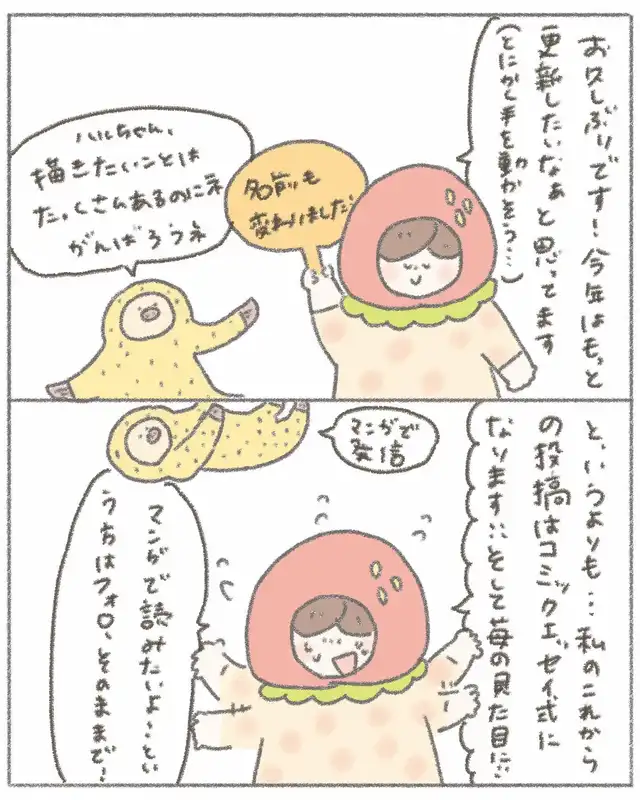 お久しぶりです！今年はもっと
更新したいなぁと思ってます
(とにかく手を動かそう…)
名前も
変わりました
ハルちゃん、
描きたいことは
たくさんあるのにネ
がんばろうネ
と、いうよりも…私のこれから
の投稿はコミックエッセイ式に
なります：：そして苺の見た目に：：
マンガで
発信
マンガで読みたいよ〜とい
う方はフォロー、そのままで！